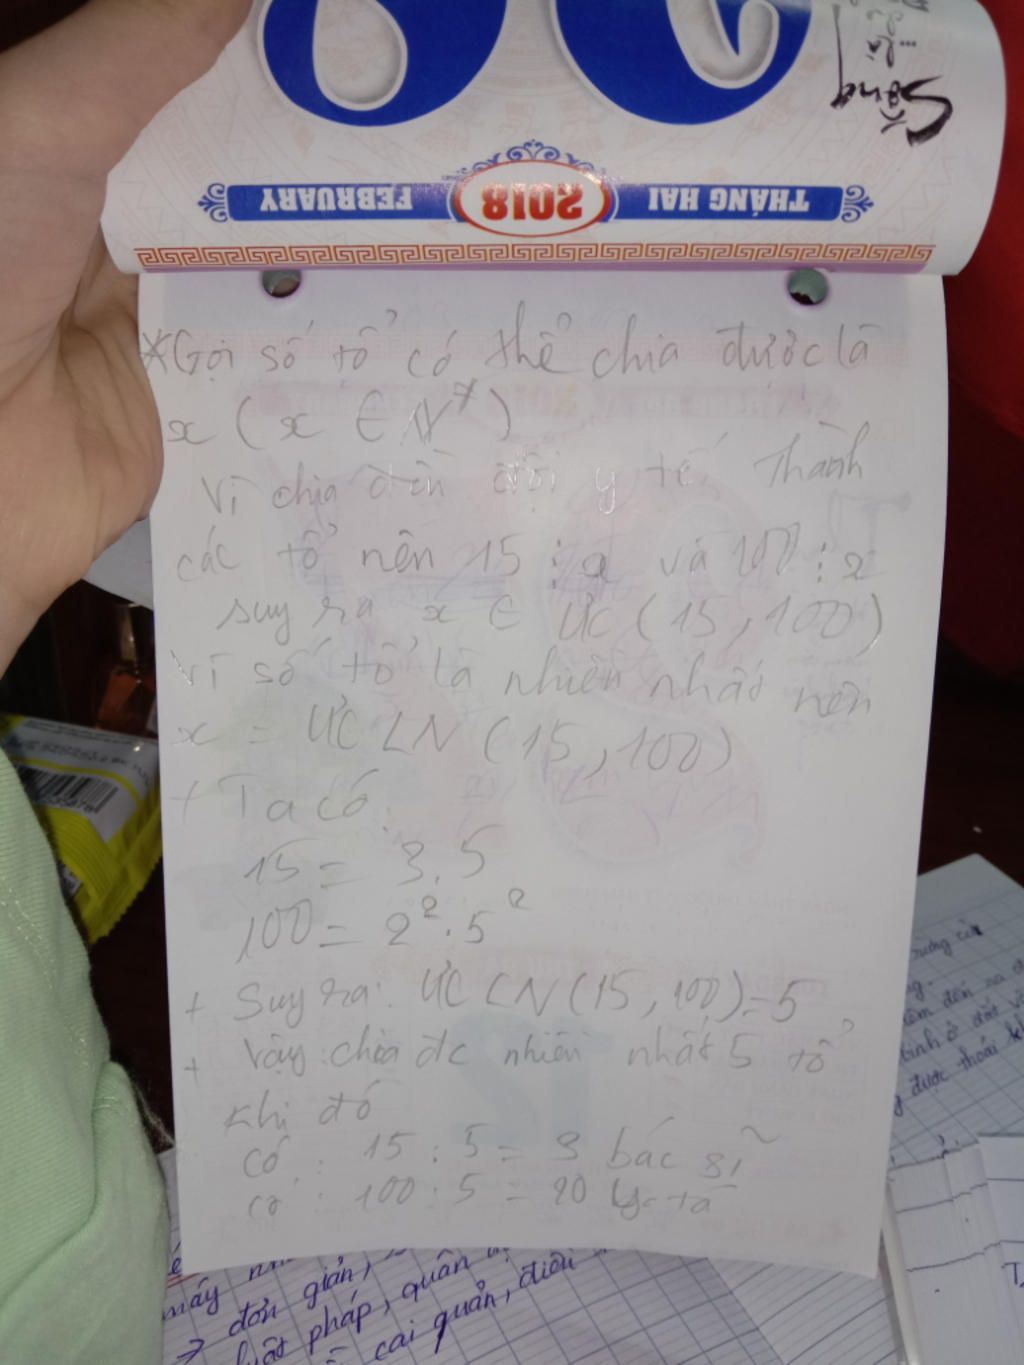 Sống
là
THÁNG HAI 2018 FEBRUARY
*Gọi số tổ có thể chia được là
x (x ∈ N*)
Vì chia đều đội y tế thành
các tổ nên 15 ⋮ x và 100 ⋮ x
suy ra x ∈ ƯC (15, 100)
Vì số tổ là nhiều nhất nên
x = ƯCLN (15, 100)
+ Ta có:
15 = 3.5
100 = 2² . 5²
+ Suy ra: ƯCLN (15, 100) = 5
+ Vậy: chia đc nhiều nhất 5 tổ
Khi đó
có : 15 : 5 = 3 bác sĩ
có : 100 : 5 = 20 y tá
12
ruộng
đến
được thoái
máy
→ đơn giản,
luật pháp, quân
cai quản, điều